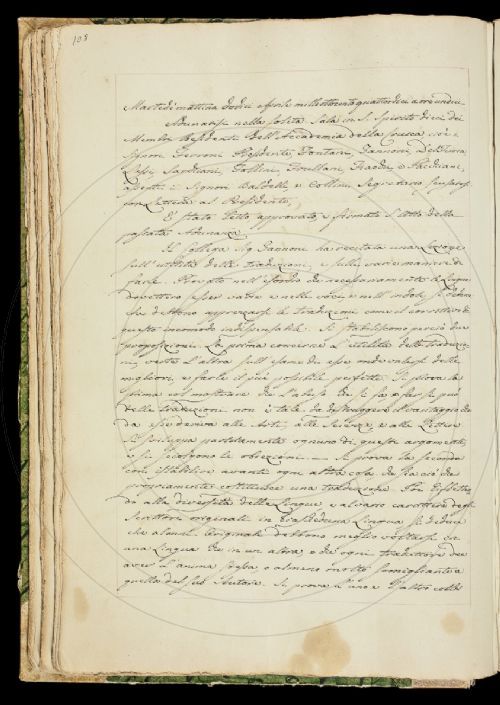 108
Martedì mattina dodici Aprile milleottocentoquattordici a ore undici
Adunatisi nella solita Sala in S. Spirito dieci dei
Membri Residenti dell'Accademia della Crusca cioè i
Signori Ferroni Presidente, Fontani, Zannoni, Del Furia
Lessi, Sarchiani, Collini, Fiaochi, e Pacchiani,
assenti i Signori Baldelli, e Collini, Segretario
con Lettera al Presidente,
È stato letto approvato, e firmato l'Atto della
passata Adunanza.
Il Collega Sig. Zannoni ha recitata una Lezione
sull'utilità delle traduzioni, e sulle varie maniere di
farle. Provato nell'esordio che necessariamente le Lingue
dovettero esser varie e nelle voci, e nell'indole, si
che debbano apprezzarsi le traduzioni come il correttivo di
questo incomodo indispensabile. Si stabiliscono perciò due
proposizioni. La prima concerne l'utilità delle traduzio-
ni, verte l'altra sull'esame di esse onde valersi delle
migliori, e farle il più possibile perfette. Si prova la
prima col mostrare che l'abuso che si fa, o far si può
delle traduzioni non è tale da distruggere il vantaggio che
da esse deriva alle Arti, alle Scienze, e alle Lettere
Si sviluppa partitamente ognuno di questi argomenti,
e si sciolgono le obiezioni. — Si prova la seconda
con stabilire avanti ogni altra cosa che sia ciò che
propriamente costituisce una traduzione. Poi riflettendo
alla diversità delle Lingue e al vario carattere degli
Scrittori originali in qualsivoglia Lingua si deduce
che alcuni Originali debbono meglio voltarsi in
una Lingua che in un altra, e che ogni traduttore dee
aver l'anima stessa, o almeno molto somigliante a
quella del suo Autore. Si prova l'uno e l'altro colle